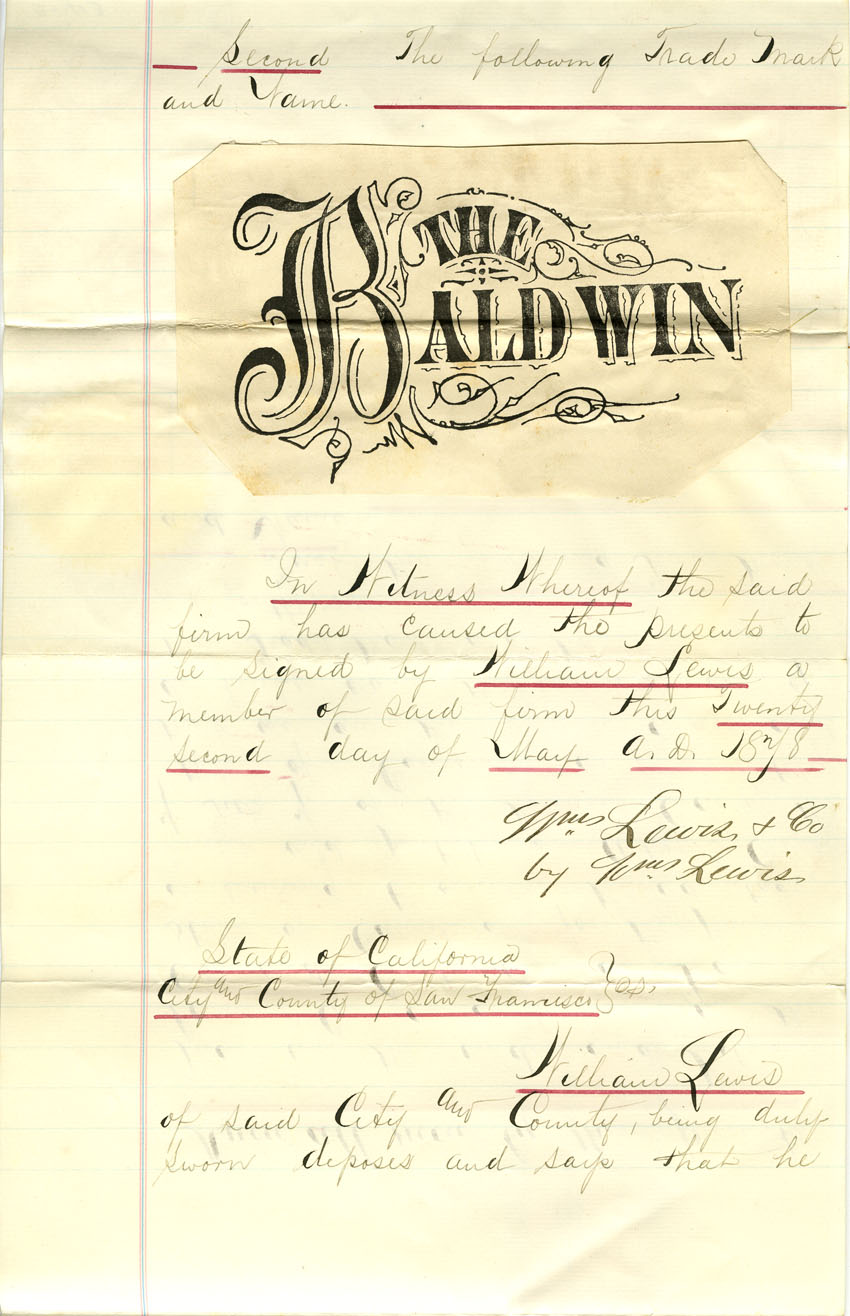 Second The following Trade Mark
and Name.
THE
BALDWIN
In Witness Whereof the said
firm has caused the presents to
be signed by William Lewis a
member of said firm this Twenty
second day of May A. D. 1878
Wms Lewis & Co
by Wms Lewis
State of California
City and County of San Francisco } ss.
William Lewis
of said City and County, being duly
sworn deposes and says that he